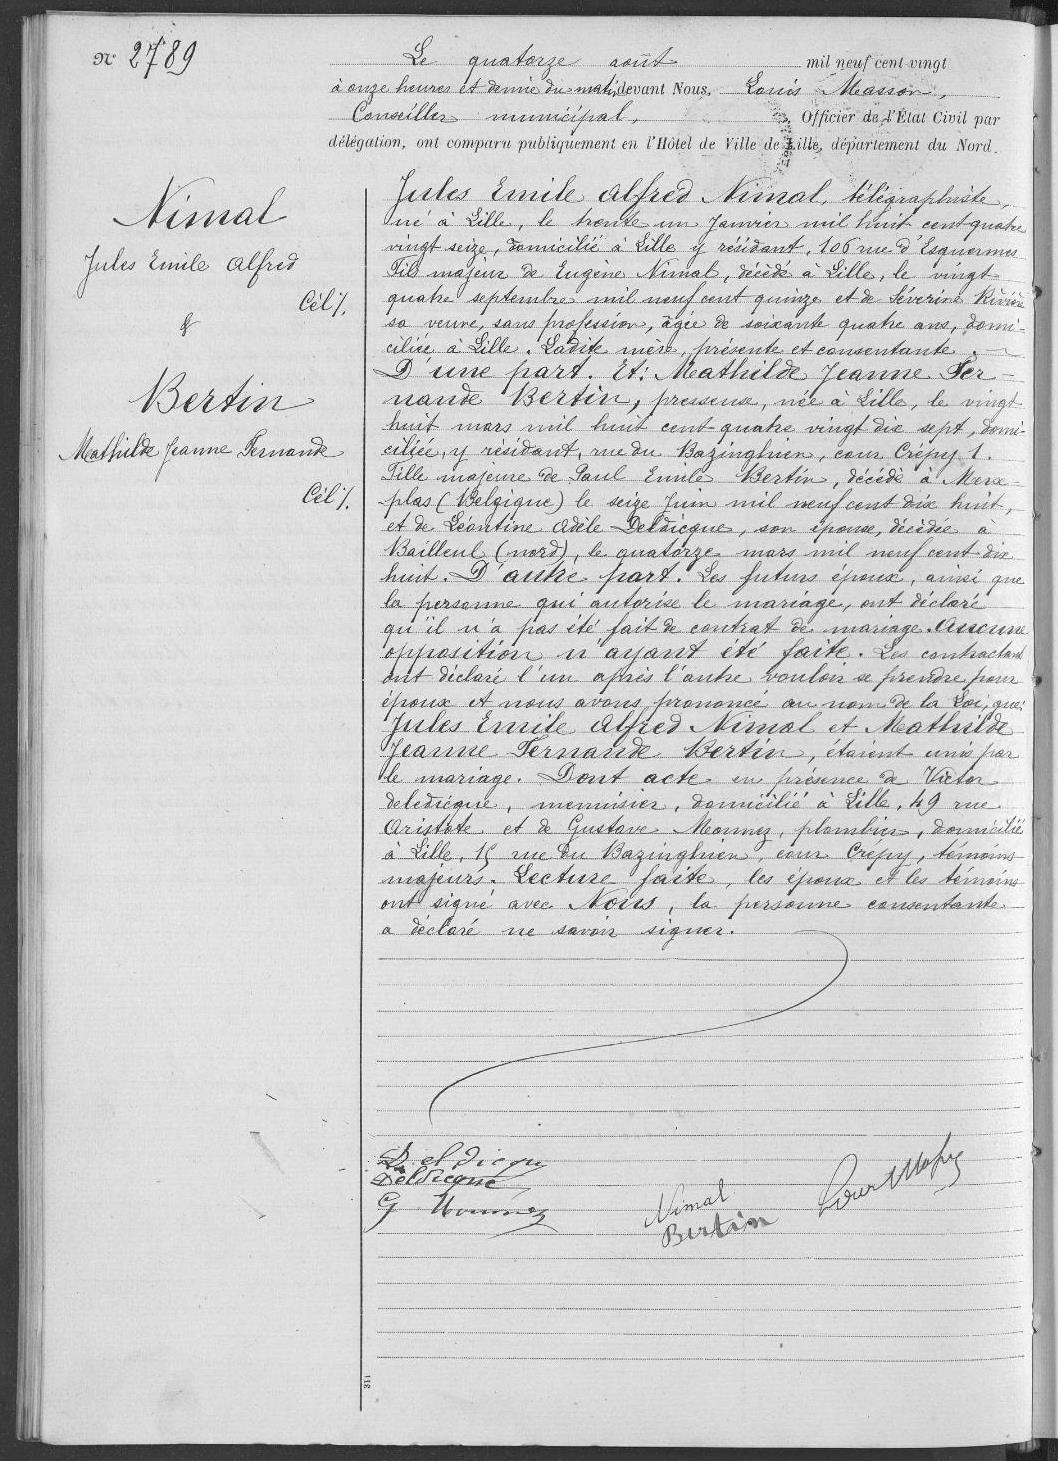 N° 2789
Le quatorze août mil neuf cent vingt
à onze heures et demie du matin, devant Nous, Louis Masson,
Conseiller municipal, Officier de l'État Civil par
délégation, ont comparu publiquement en l'Hôtel de Ville de Lille, département du Nord.
Nimal
Jules Emile Alfred
Cél/.
&
Bertin
Mathilde Jeanne Fernande
Cél/.
Jules Emile Alfred Nimal, télégraphiste,
né à Lille, le trente un Janvier mil huit cent quatre
vingt seize, domicilié à Lille y résidant, 106 rue d'Esquermes
Fils majeur de Eugène Nimal, décédé à Lille, le vingt
quatre septembre mil neuf cent quinze et de Séverine Rivière
sa veuve, sans profession, âgée de soixante quatre ans, domi-
ciliée à Lille. Ladite mère, présente et consentante.
D'une part. Et: Mathilde Jeanne Fer-
nande Bertin, presseuse, née à Lille, le vingt
huit mars mil huit cent quatre vingt dix sept, domi-
ciliée, y résidant, rue du Bazinghien, cour Crépy 1.
Fille majeure de Paul Emile Bertin, décédé à Merx-
plas (Belgique) le seize Juin mil neuf cent dix huit,
et de Léontine Adèle Deldicque, son épouse, décédée à
Bailleul (nord), le quatorze mars mil neuf cent dix
huit. D'autre part. Les futurs époux, ainsi que
la personne qui autorise le mariage, ont déclaré
qu'il n'a pas été fait de contrat de mariage. Aucune
opposition n'ayant été faite. Les contractant
ont déclaré l'un après l'autre vouloir se prendre pour
époux et nous avons prononcé au nom de la Loi, que:
Jules Emile Alfred Nimal et Mathilde
Jeanne Fernande Bertin, étaient unis par
le mariage. Dont acte en présence de Victor
deledicque, menuisier, domicilié à Lille, 49 rue
Aristote et de Gustave Mounez, plombier, domicilié
à Lille, 15 rue du Bazinghien, cour Crépy, témoins
majeurs. Lecture faite, les époux et les témoins
ont signé avec Nous, la personne consentante
a déclaré ne savoir signer.
Deldicque
Nimal
Bertin
311